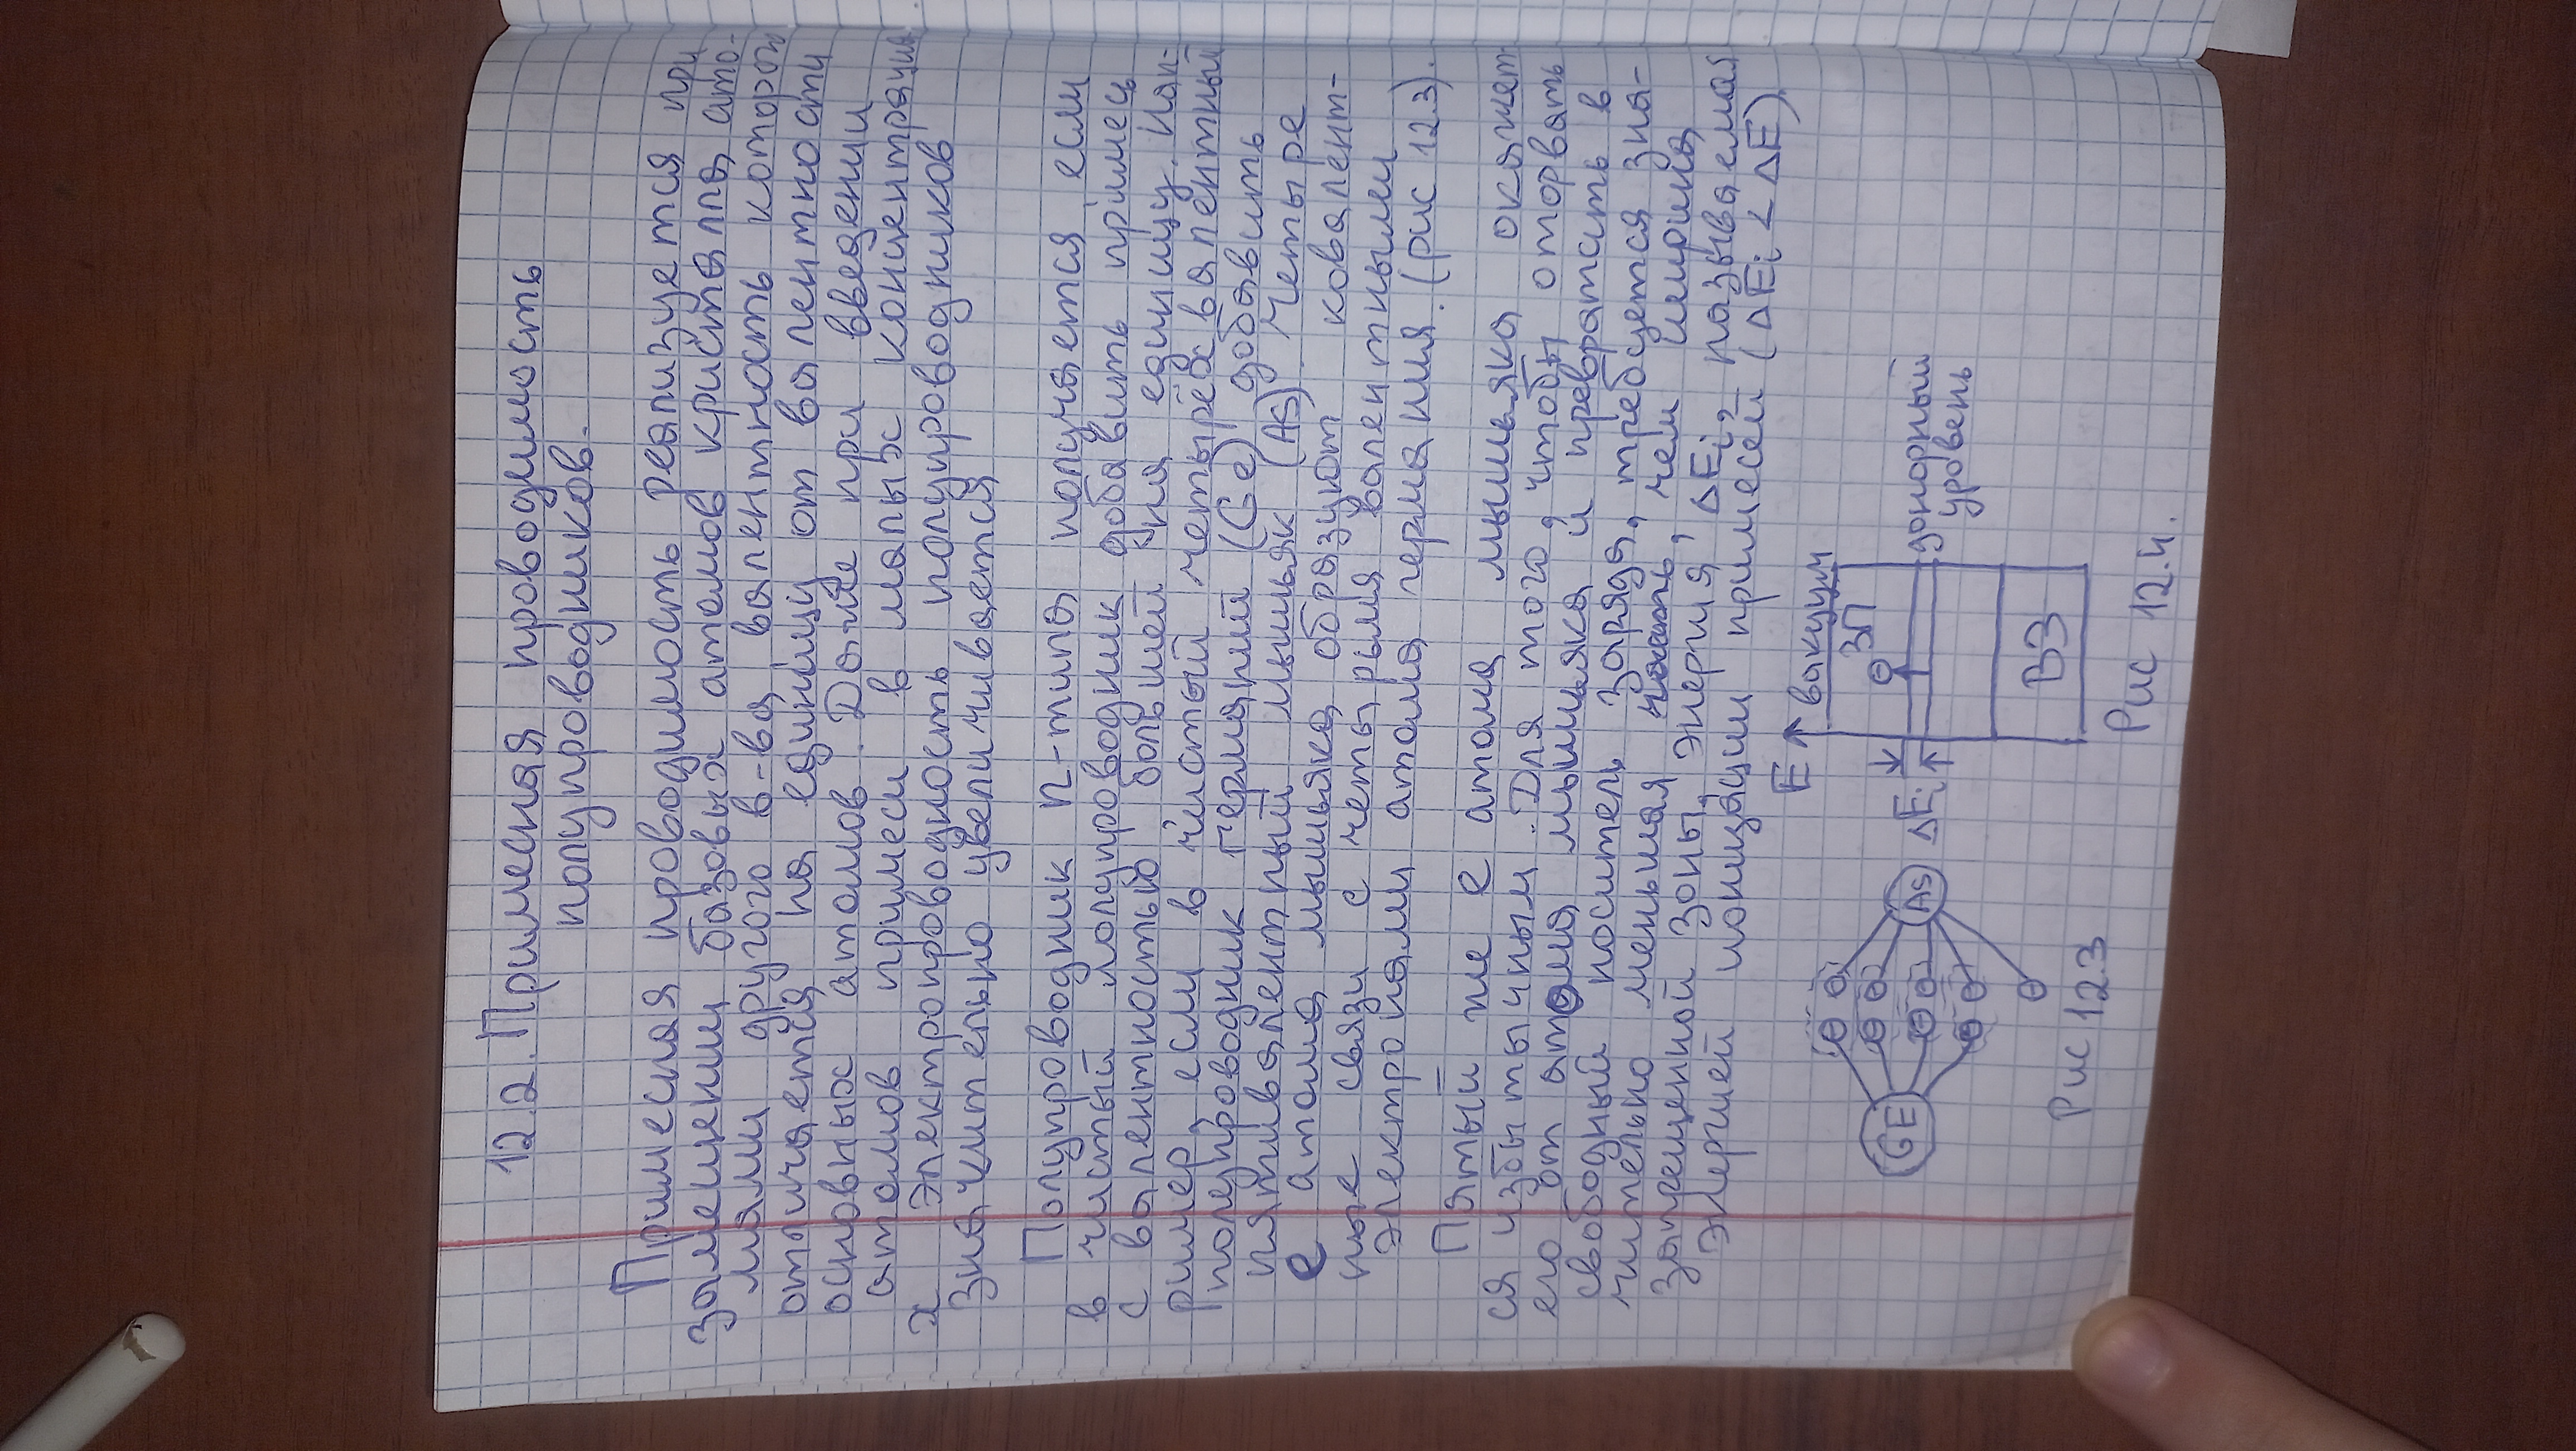 12.2. Примесная проводимость
полупроводников.
Примесная проводимость реализуется при
замещении базовых атомов кристалла ато-
мами другого в-ва, валентность которого
отличается на единицу от валентности
основных атомов. Даже при введении
атомов примеси в малых концентрация
х электропроводность полупроводников
значительно увеличивается
Полупроводник n-типа получается, если
в чистый полупроводник добавить примесь
с валентностью, большей на единицу. Нап-
ример, если в чистый четырёхвалентный
полупроводник германий (Ge) добавить
пятивалентный мышьяк (AS). Четыре
e атома мышьяка образуют ковалент-
ные связи с четырьмя валентными
электронами атома германия. (рис 12.3).
Пятый же e атома мышьяка окажет-
ся избытычным. Для того, чтобы оторвать
его от атома мышьяка и превратить в
свободный носитель заряда, требуется зна-
чительно меньшая, чем ширина
запрещенной зоны, энергия ΔEi, называемая
энергией ионизации примесей (ΔEi < ΔE).
E вакуум
ЗП
GE As ΔEi донорный
уровень
ВЗ
Рис 12.3
Рис 12.4.